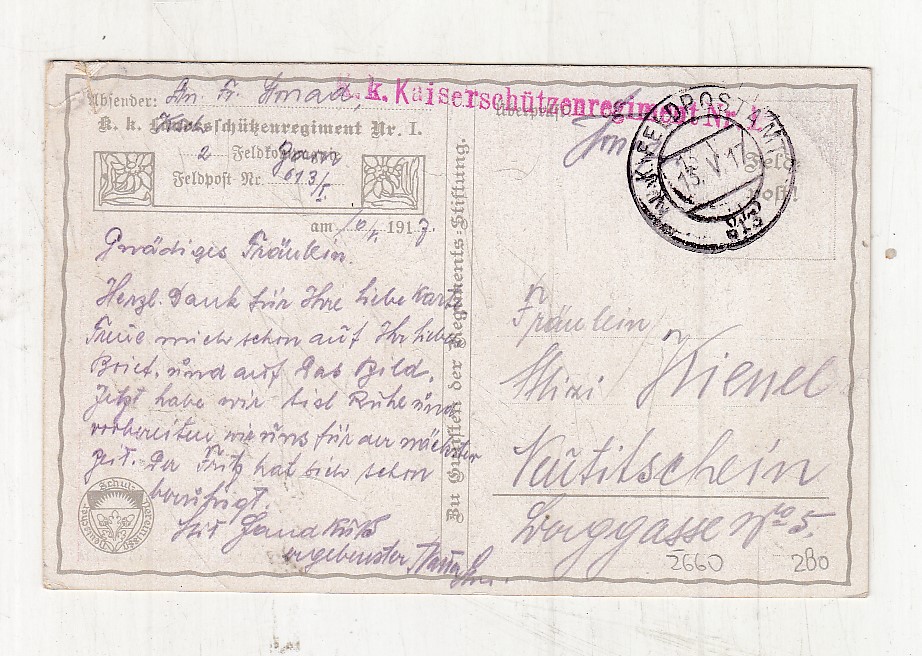 Absender:
K. k. Kaiserschützenregiment Nr. 1
K. k. Landesschützenregiment Nr. I.
2 Feldkompagnie
Feldpost-Nr. 613/I
am 10/V. 1917.
Gnädiges Fräulein.
Herzl. Dank für Ihre liebe Karte
Freue mich schon auf Ihr liebes
Brief, und auf das Bild.
Jetzt habe wir viel Ruhe und
vorbereiten wir uns für der nächster
Zeit. Der Fritz hat sich schon
beruhigt.
Mit Handkuß
ergebenster
Zu Gunsten der Regiments-Stiftung.
K.u.K. FELDPOSTAMT
13. V. 17
613
Feld-
post!
Fräulein
Mizi Kienel
Neutitschein
Berggasse No 5.
2660 280
Deutscher Schul-Verein 1880